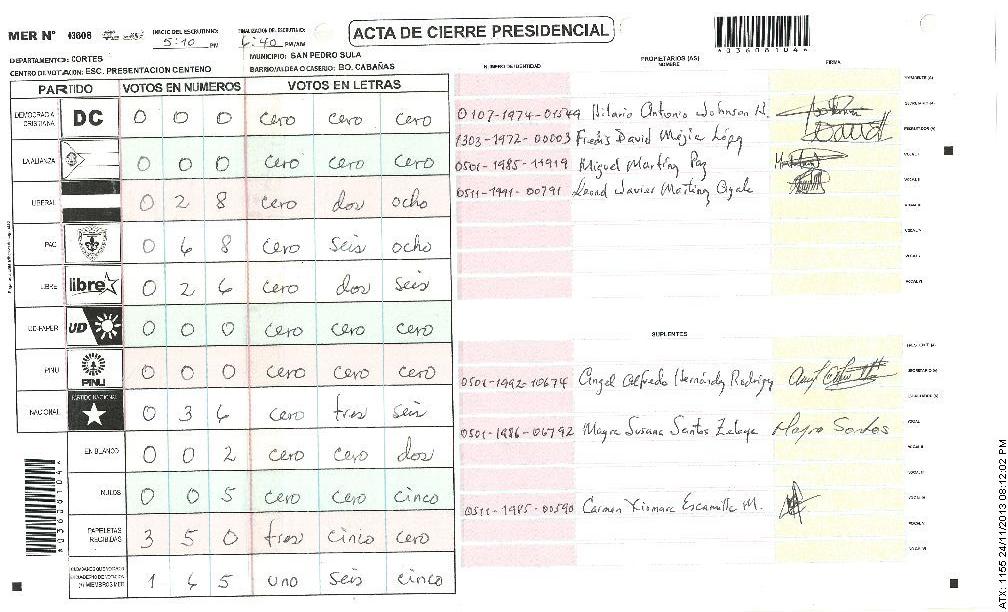 MER N° 03606 INICIO DEL ESCRUTINIO: 5:10 PM FINALIZACION DEL ESCRUTINIO: 6:40 PM/AM
ACTA DE CIERRE PRESIDENCIAL
*0360610 4*
DEPARTAMENTO: CORTES MUNICIPIO: SAN PEDRO SULA
CENTRO DE VOTACION: ESC. PRESENTACION CENTENO BARRIO/ALDEA O CASERIO: BO. CABAÑAS
PARTIDO VOTOS EN NUMEROS VOTOS EN LETRAS
DEMOCRACIA CRISTIANA DC 0 0 0 cero cero cero
LA ALIANZA 0 0 0 cero cero cero
LIBERAL 0 2 8 cero dos ocho
PAC 0 6 8 cero seis ocho
LIBRE libre 0 2 6 cero dos seis
UD-FAPER UD 0 0 0 cero cero cero
PINU PINU 0 0 0 cero cero cero
NACIONAL PARTIDO NACIONAL 0 3 6 cero tres seis
EN BLANCO 0 0 2 cero cero dos
NULOS 0 0 5 cero cero cinco
PAPELETAS RECIBIDAS 3 5 0 tres cinco cero
1 6 5 uno seis cinco
NUMERO DE IDENTIDAD PROPIETARIOS (AS) NOMBRE FIRMA
PRESIDENTE (A)
SECRETARIO (A)
0107-1974-01549 Hilario Antonio Johnson N.
ESCRUTADOR (A)
1303-1972-00003 Fredis David Mejia López
VOCAL I
0501-1985-11919 Miguel Martinz Paz
VOCAL II
0511-1991-00791 Leond Javier Martinz
VOCAL III
VOCAL IV
VOCAL V
VOCAL VI
SUPLENTES
PRESIDENTE (A)
SECRETARIO (A)
0501-1992-10674 Angel Alfredo Hernández Rodrigz
ESCRUTADOR (A)
VOCAL I
0501-1986-06792 Mayra Susana Santos Zelaya Mayra Santos
VOCAL II
VOCAL III
VOCAL IV
0511-1985-00590 Carmen Xiomara Escamilla M.
VOCAL V
VOCAL VI
ATX: 1155 24/11/2013 08:12:02 PM